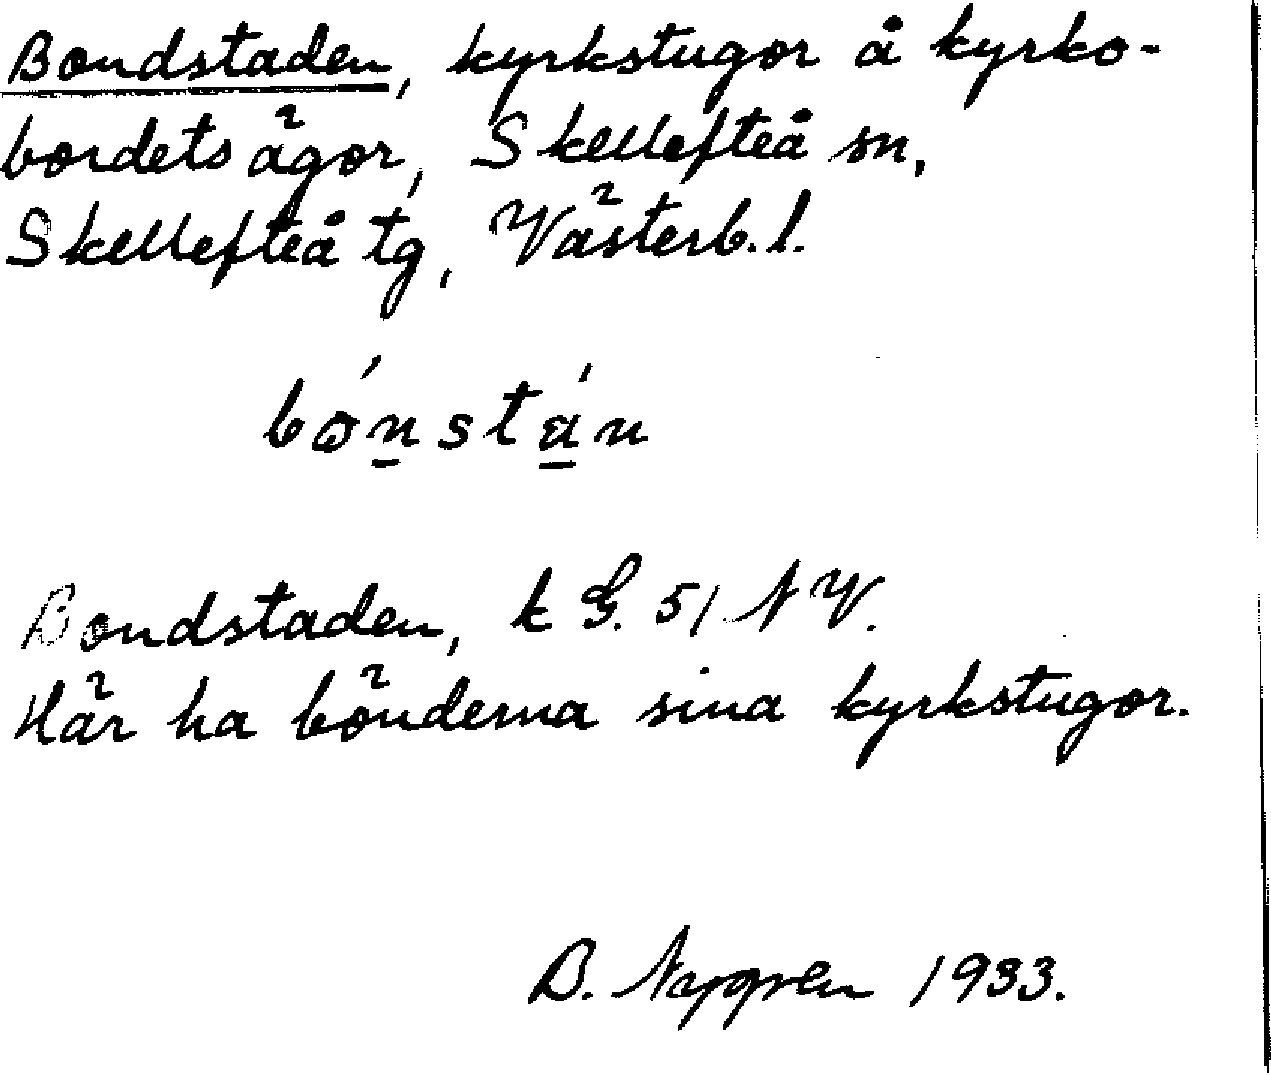 Bondstaden, kyrkstugor å kyrko-
bordets ägor, Skellefteå sn,
Skellefteå tg, Västerb. l.
bo̱´ṉsta̱´n
Bondstaden, k G. 51 NV.
Här ha bönderna sina kyrkstugor.
B. Nygren 1933.